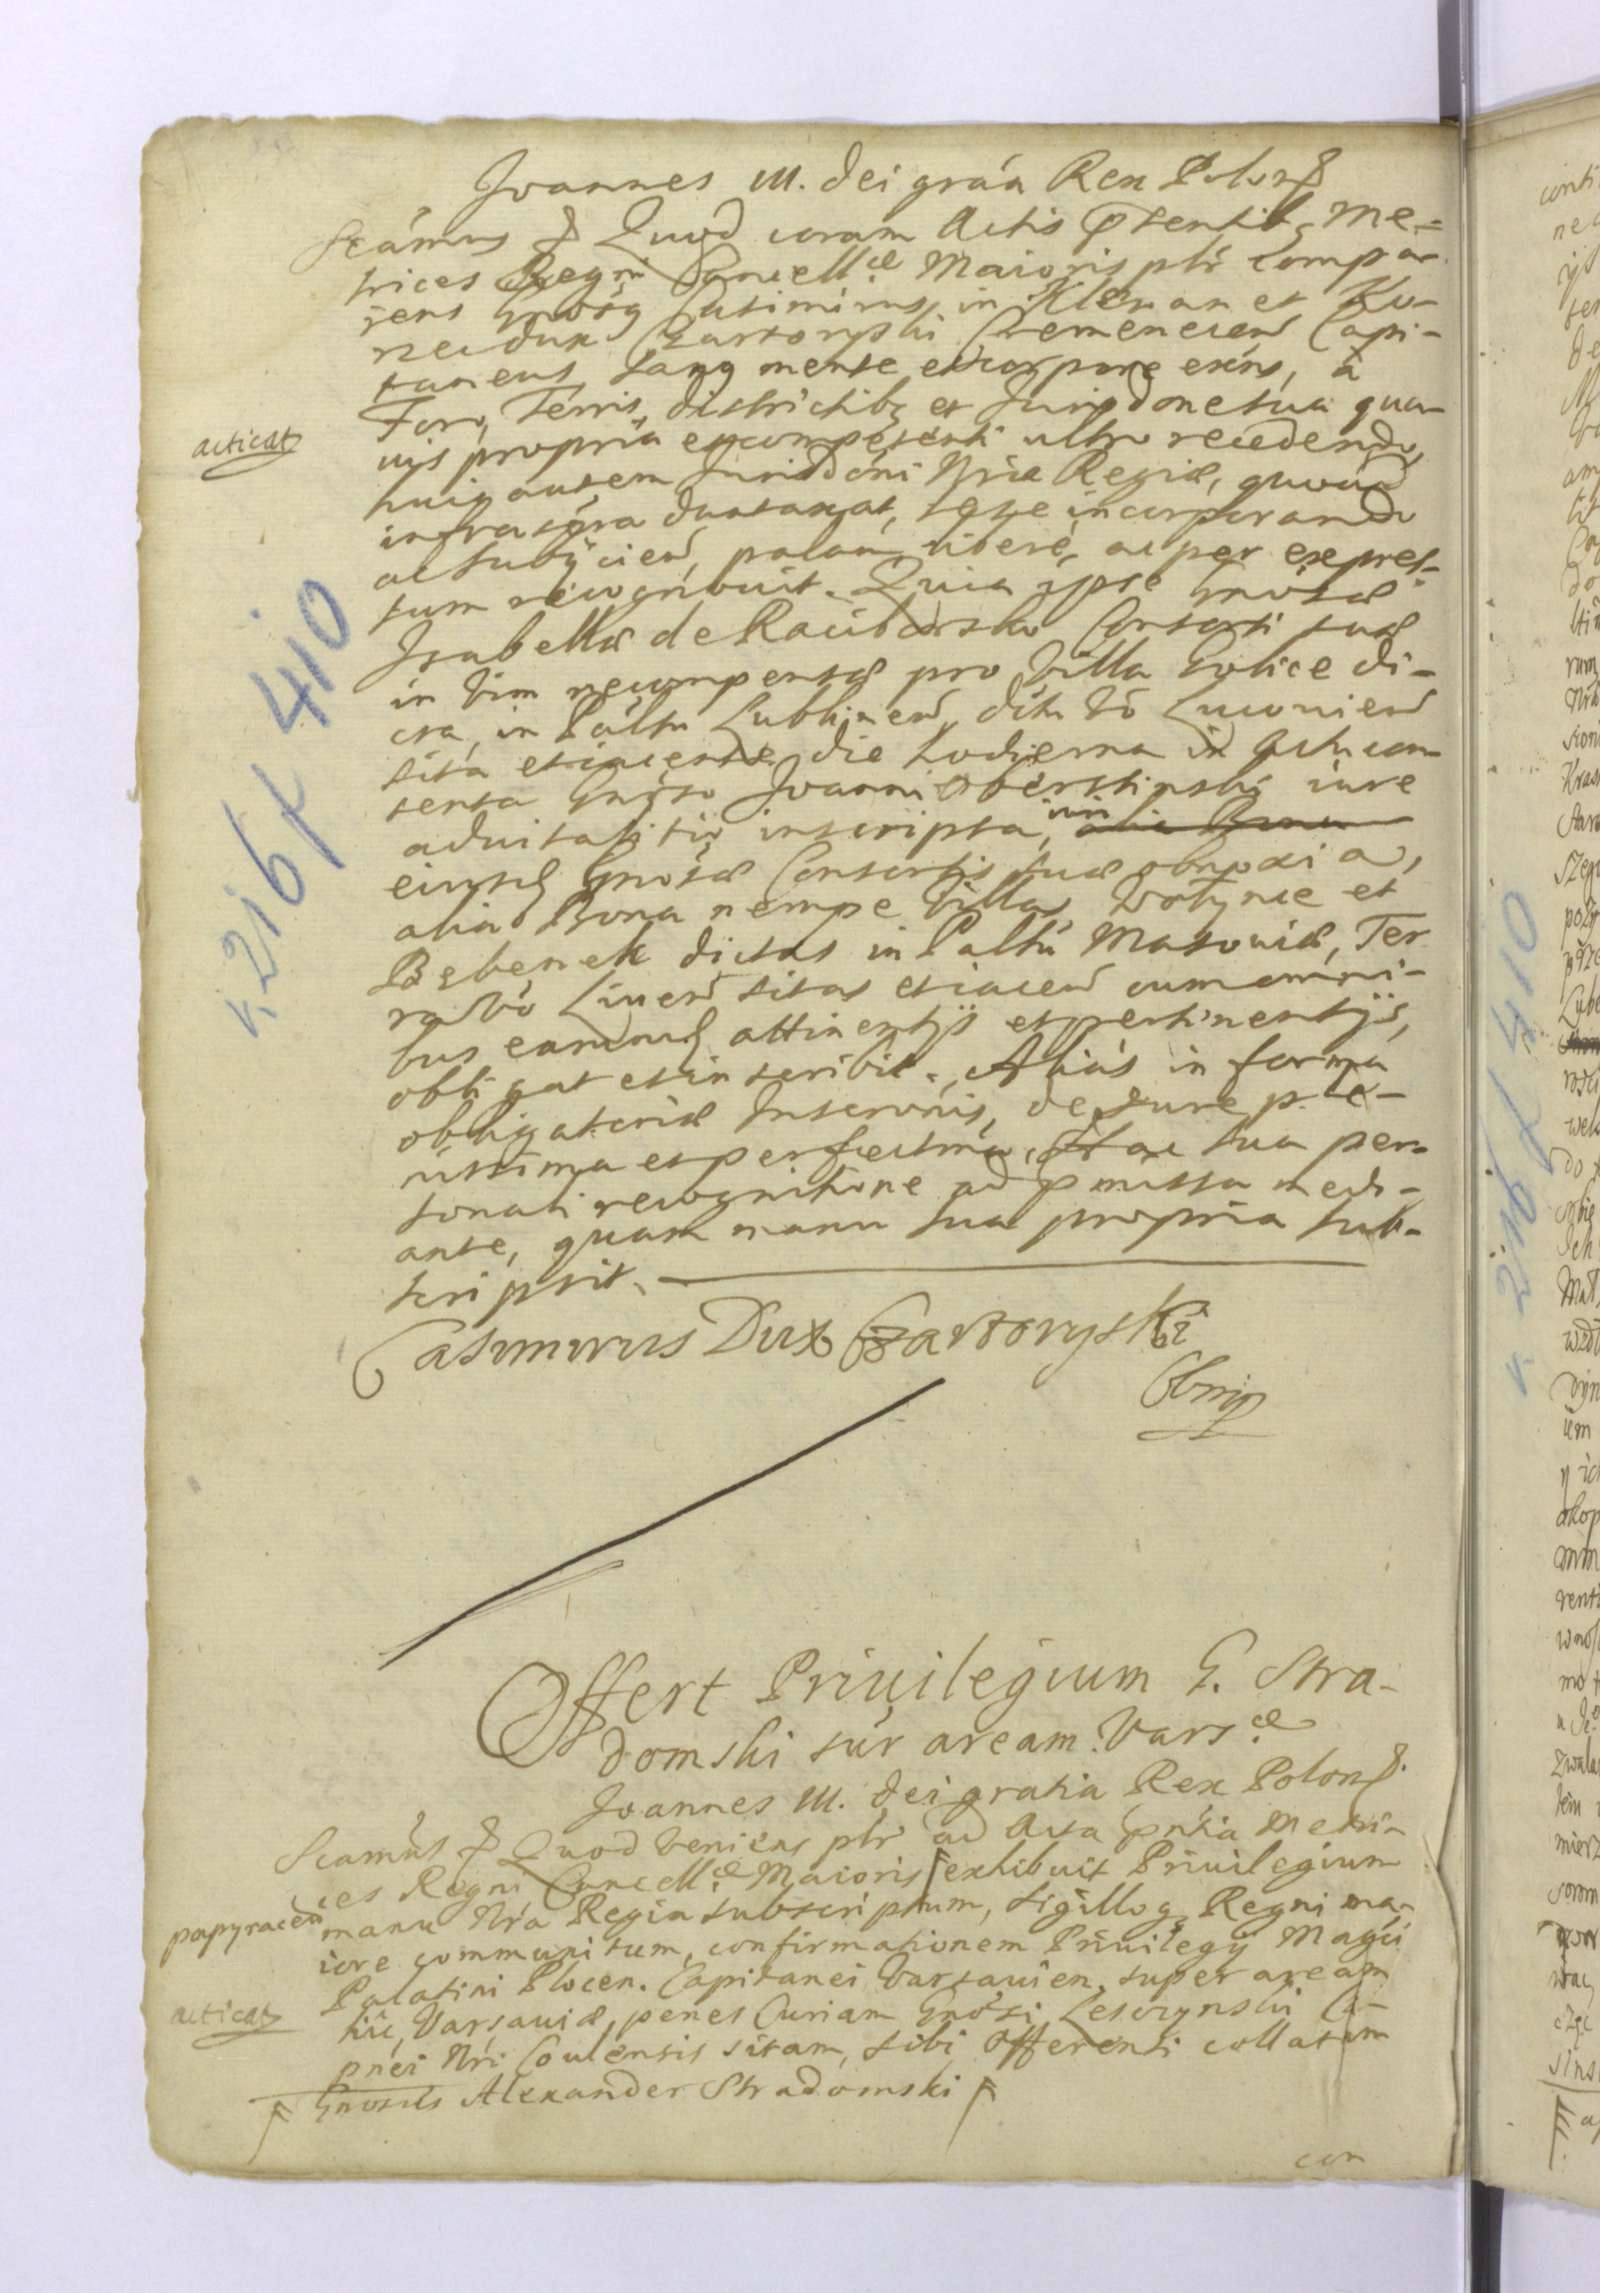 Joannes III. Dei gráa Rex Polon
Scámus Quod coram Actis p̃sentib9 Me-
trices Regni Cancell.æ Maioris plr̃ Compa-
rens Gnosq Casimirus in Klewan et Ko-
rzec dux Czartoryski Cremenecen̄ Capi-
taneus Sanq mente et corpore exñs, à
Foro, Terris, districtibq et Jurisdone sua qua-
vis propria et competenti ultro recedendo,
huiq autem Jurisdoni Nræ Regiæ, quoad
infrascṕra duntaxat, sese incorporando
ac subijcien̄, palam, liberè, ac per expres-
sum recognovit. Quia ipse Gnosæ
Isabellæ de Raciborsko Consorti suæ
in vim recompensæ pro Villa
cta, in Paltu Lublinen̄, dictu vo Lucovien̄
sita et iacente, die hodierna in Actu con-
sensa Gnoso Joanni Oberstinski iure
advitalitio inscripta, uti alia Bona
eiusd Gnosæ Consortis suæ obnoxia,
alia Bona nempe Villas Wotynce et
Bebenek dictas in Paltu Masoviæ, Ter
ra vo Livén̄ sitas et iacen̄ cum omni-
bus earund attinentijs et pertinentijs,
obligat et inscribit. Aliàs in forma
obligatoriæ Inscronis, de iure ple-
nissima et perfectma. Hac sua per-
sonali recognitione ad p̃missa medi-
ante, quam manu sua propria sub-
scripsit.
Casimirus Dux Czartoryski
Offert Privilegium G. Stra-
domski súr aream Vars.æ
Joannes III. Dei gratia Rex Polon
Scámus Quod Veniens plr̃ ad Acta p̃ntia Metri-
ces Regni Cancell.æ Maioris exhibuit Privilegium
papyraceu manu Nrá Regia subscriptum, sigilloq Regni ma-
iore communitum, confirmationem Privilegij Magci
Palatini Plocen. Capitanei Varsavien, super aream
hîc Varsaviæ, penes Curiam Gnosi Lesczynski Ca-
pnei Nri Coulensis sitam, sibi Offerenti collatam
Gnosus Alexander Stradomski
con
acticat
acticat
410